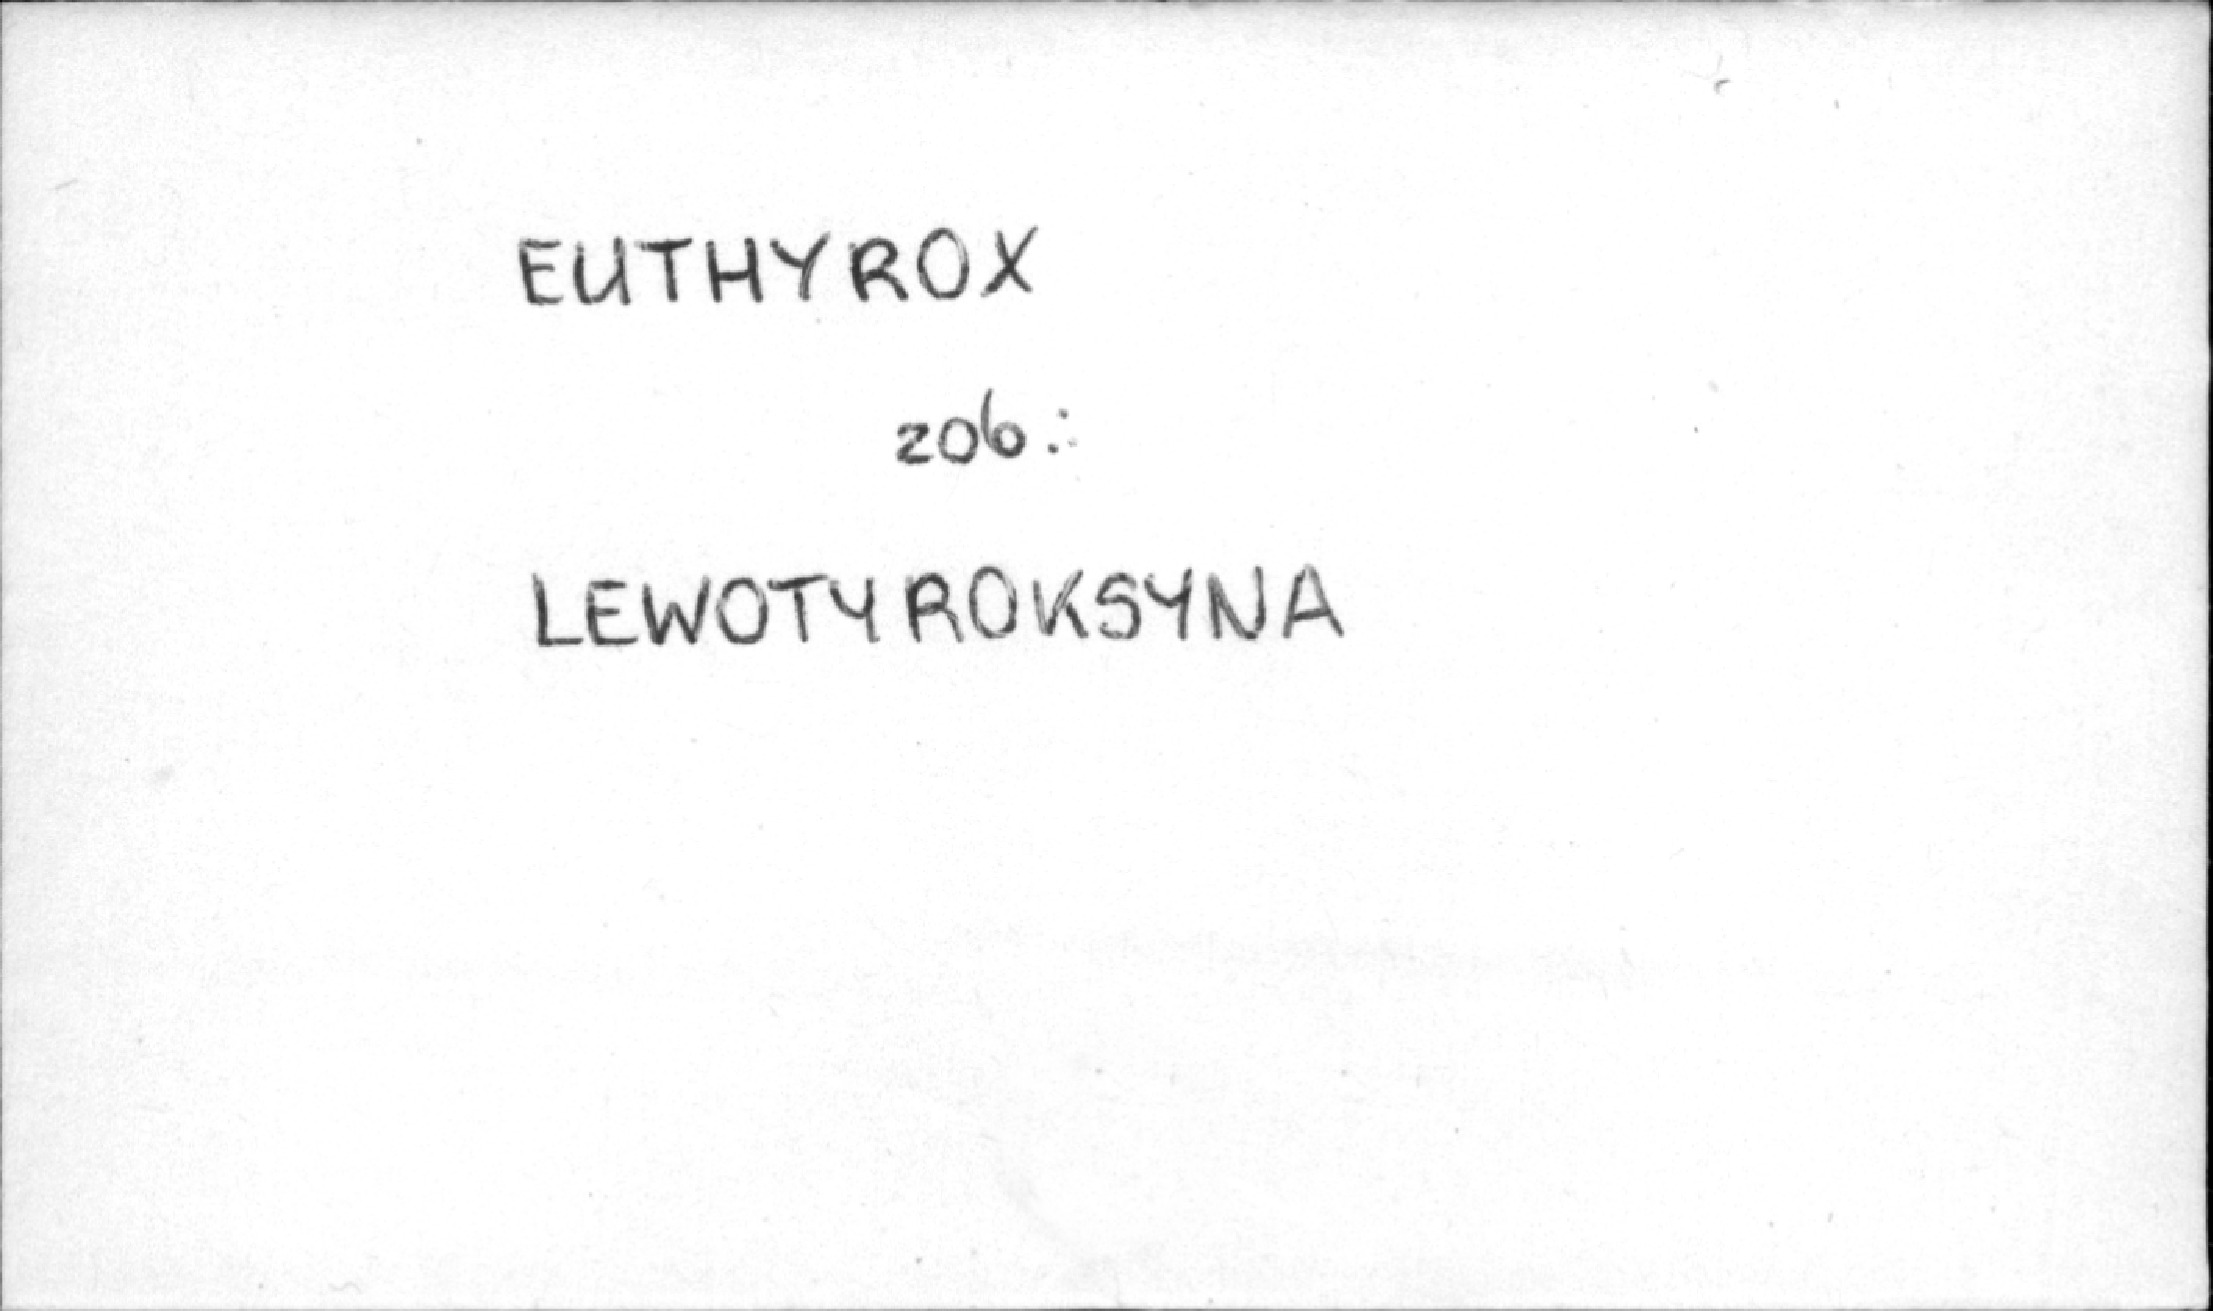 EUTHYROX
zob.:
LEWOTYROKSYNA